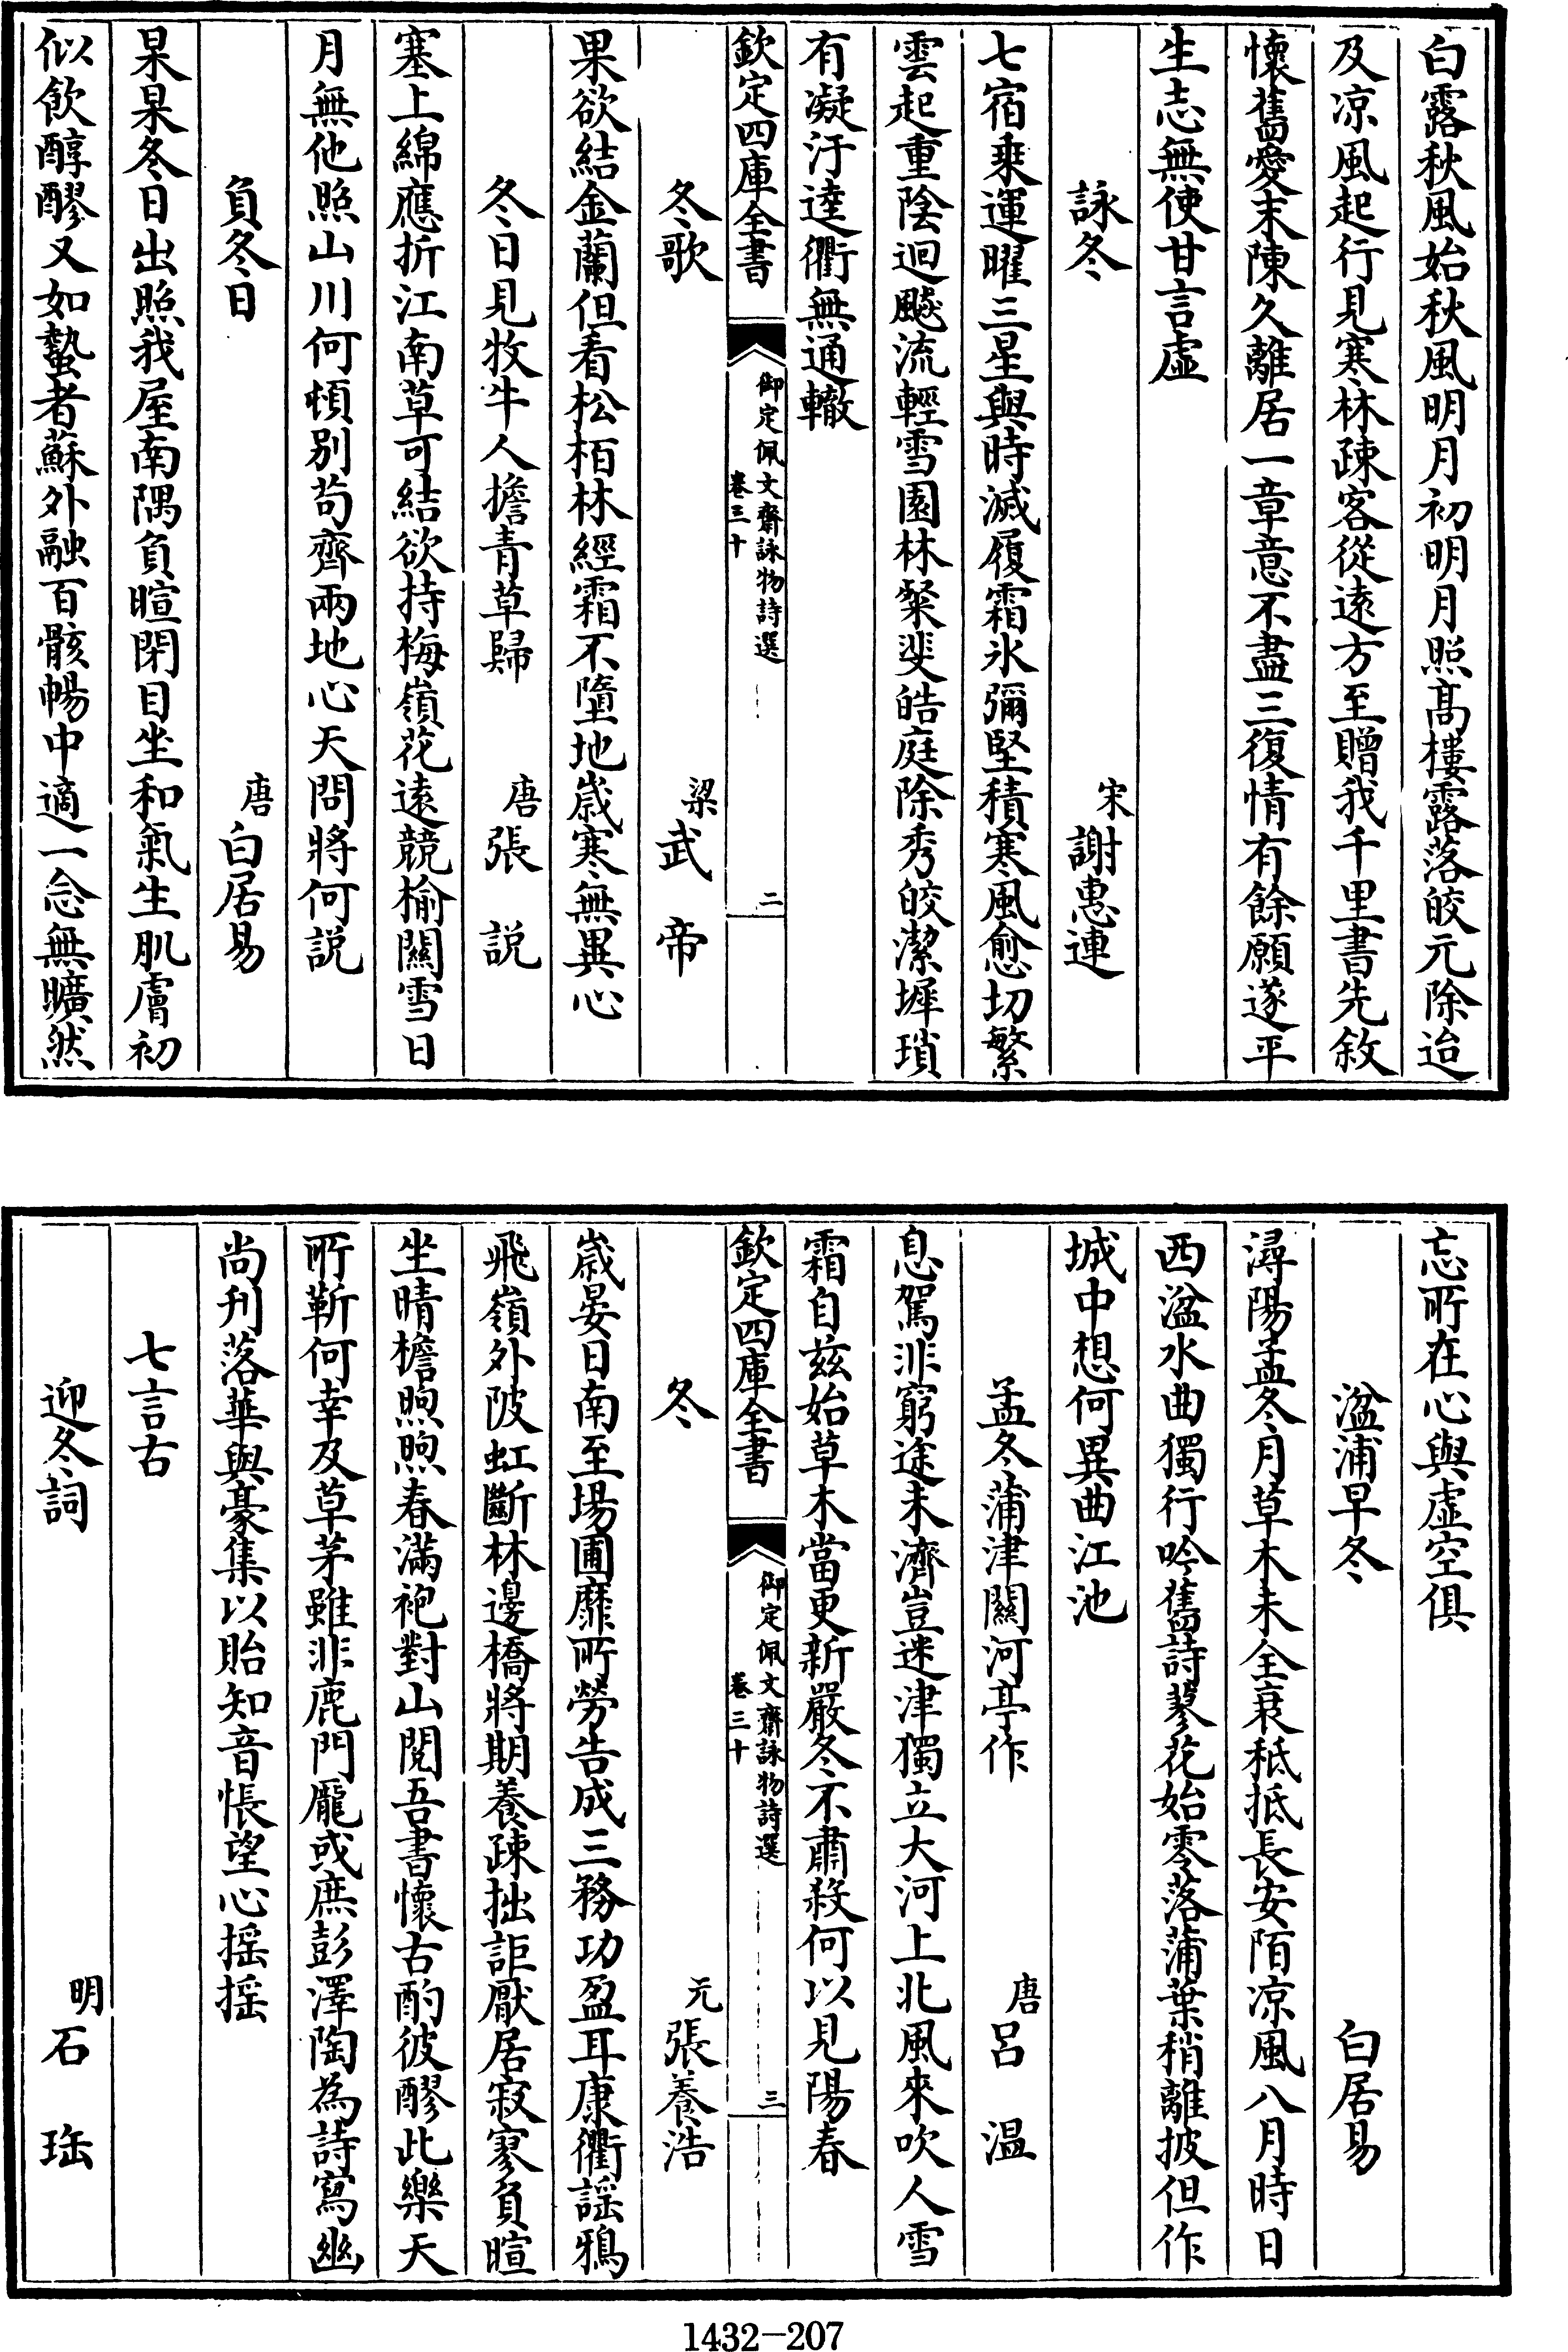 白露秋風始秋風明月初明月照髙樓露落皎元除迨
及凉風起行見寒林疎客從逺方至贈我千里書先敘
懷舊愛末陳久離居一章意不盡三復情有餘願遂平
生志無使甘言虛
詠冬 宋謝惠連
七宿乗運曜三星與時滅履霜氷彌堅積寒風愈切繁
雲起重陰迴飈流輕雪園林粲斐皓庭除秀皎潔墀瑣
有凝汙逵衢無通轍
欽定四庫全書 御定佩文齋詠物詩選 卷三十 二
冬歌 梁武帝
果欲結金蘭但看松栢林經霜不墮地嵗寒無異心
冬日見牧牛人擔青草歸 唐張說
塞上綿應折江南草可結欲持梅嶺花逺競榆關雪日
月無他照山川何頓别苟齊兩地心天問將何說
負冬日 唐白居易
杲杲冬日出照我屋南隅負暄閉目坐和氣生肌膚初
似飲醇醪又如蟄者蘇外融百骸暢中適一念無曠然
忘所在心與虛空俱
湓浦早冬 白居易
潯陽孟冬月草木未全衰秪抵長安陌凉風八月時日
西湓水曲獨行吟舊詩蓼花始零落蒲葉稍離披但作
城中想何異曲江池
孟冬蒲津關河亭作 唐吕溫
息駕非窮途未濟豈迷津獨立大河上北風來吹人雪
霜自茲始草木當更新嚴冬不肅殺何以見陽春
欽定四庫全書 御定佩文齋詠物詩選 卷三十 三
冬 元張養浩
嵗晏日南至場圃靡所勞告成三務功盈耳康衢謡鴉
飛嶺外陂虹斷林邊橋將期養疎拙詎厭居寂寥負暄
坐晴檐煦煦春滿袍對山閱吾書懷古酌彼醪此樂天
所靳何幸及草茅雖非鹿門龎或庶彭澤陶為詩寫幽
尚刋落華與豪集以貽知音悵望心揺揺
七言古
迎冬詞 明石珤
1432-207